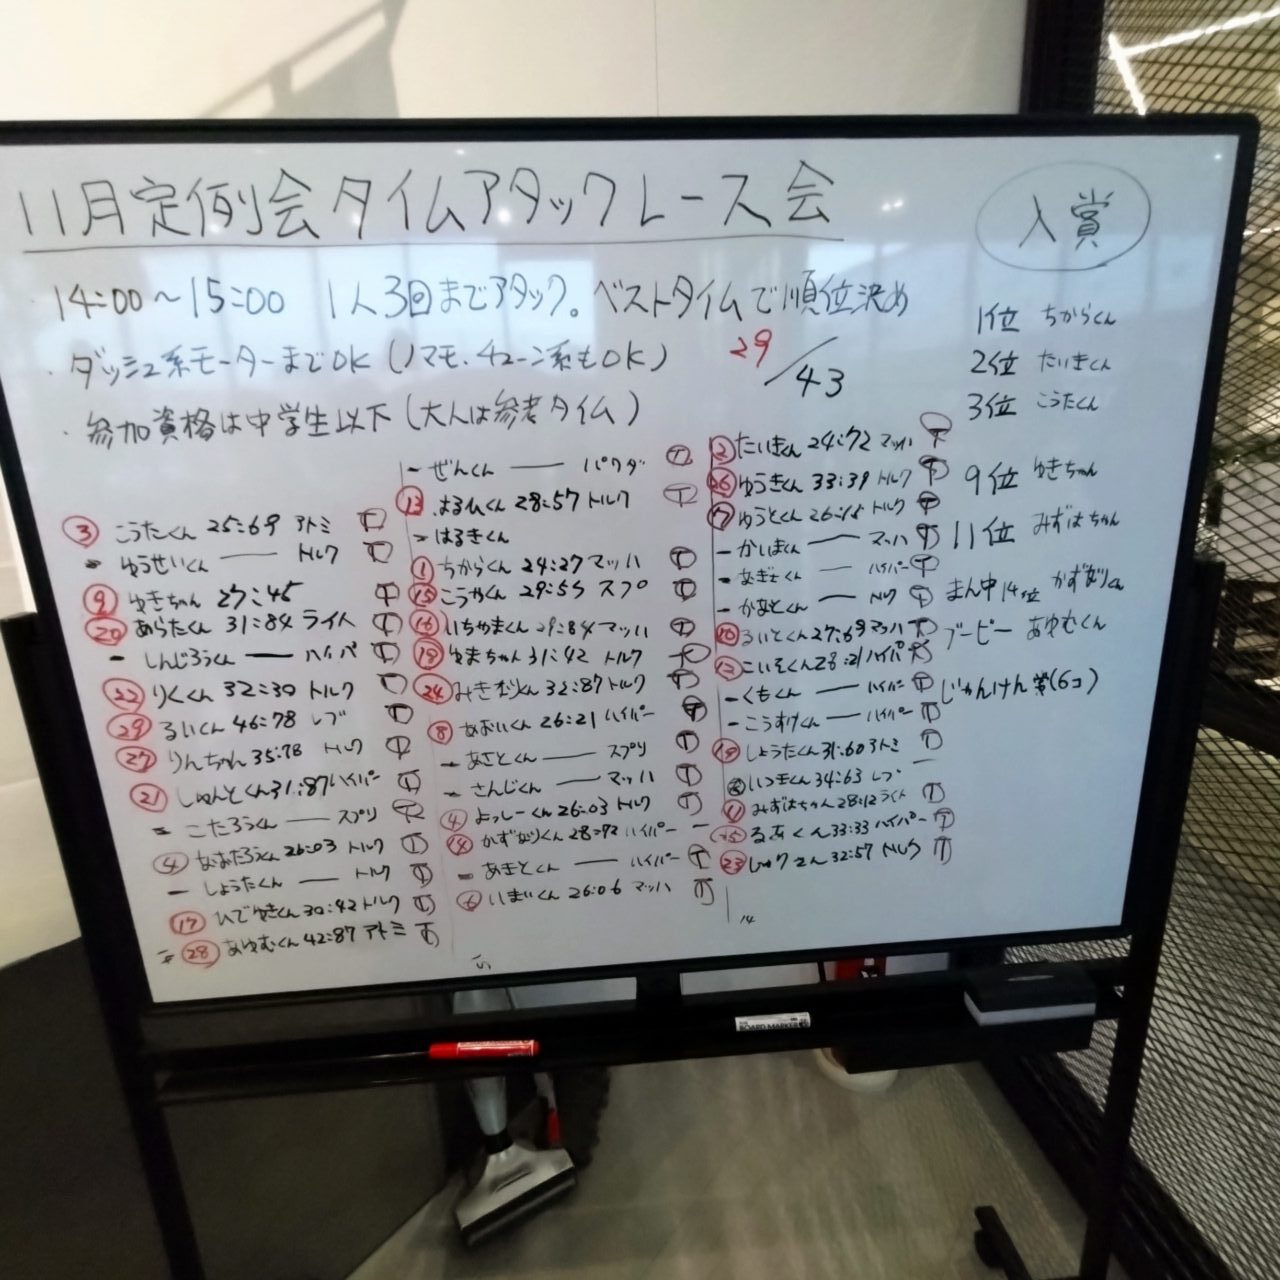 11月定例会タイムアタックレース会
入賞
・14:00～15:00 1人3回までアタック。ベストタイムで順位決め
・ダッシュ系モーターまでOK(ノマモ、チューン系もOK)
29/43
・参加資格は中学生以下(大人は参考タイム)
③ こうたくん 25:69 アトミ Ⓣ
- ゆうせいくん — トルク Ⓣ
⑨ ゆきちゃん 27:45 Ⓣ
⑳ あらたくん 31:84 ライト Ⓣ
- しんじろうくん — ハイパ Ⓣ
㉒ りくくん 32:30 トルク Ⓣ
㉙ るいくん 46:78 レブ Ⓣ
㉗ りんちゃん 35:78 トルク Ⓣ
㉑ しゅんとくん 31:87 ハイパー Ⓣ
- こたろうくん — スプリ Ⓣ
④ なおたろうくん 26:03 トルク Ⓣ
- しょうたくん — トルク Ⓣ
⑰ ひでゆきくん 30:42 トルク Ⓣ
㉘ あゆむくん 42:87 アトミ Ⓣ
- ぜんくん — パワダ Ⓣ
⑬ 28:57 トルク Ⓣ
- はるきくん
① ちからくん 24:27 マッハ Ⓣ
⑮ こうやくん 29:55 スプ Ⓣ
⑯ いちやまくん 29:84 マッハ Ⓣ
⑱ ゆまちゃん 31:42 トルク
㉔ 32:87 トルク Ⓣ
⑧ あおいくん 26:21 ハイパー Ⓣ
- あさとくん — スプリ Ⓣ
- さんじくん — マッハ Ⓣ
④ よっしーくん 26:03 トルク Ⓣ
⑭ かずなりくん 28:92 ハイパー -
- あきとくん — ハイパー Ⓣ
⑥ 26:06 マッハ Ⓣ
15
② たいきくん 24:72 マッハ Ⓣ
㉖ ゆうきくん 33:39 トルク Ⓣ
⑦ ゆうとくん 26:15 トルク Ⓣ
- かいまくん — マッハ Ⓣ
- なぎとくん — ハイパー Ⓣ
- かなとくん — トルク Ⓣ
⑩ るいとくん 27:69 マッハ Ⓣ
⑫ 28:21 ハイパ Ⓣ
- くもくん — ハイパー Ⓣ
- こうすけくん — ハイパー Ⓣ
⑲ しょうたくん 31:60 アトミ Ⓣ
いつきくん 34:63 レブ -
⑪ みずはちゃん 28:12 ライト Ⓣ
㉕ るあくん 33:33 ハイパー Ⓣ
㉓ 32:57 トルク Ⓣ
14
1位 ちからくん
2位 たいきくん
3位 こうたくん
9位 ゆきちゃん
11位 みずはちゃん
まん中14位 かずなりくん
ブービー あゆむくん
じゃんけん賞(6コ)
BOARD MARKER